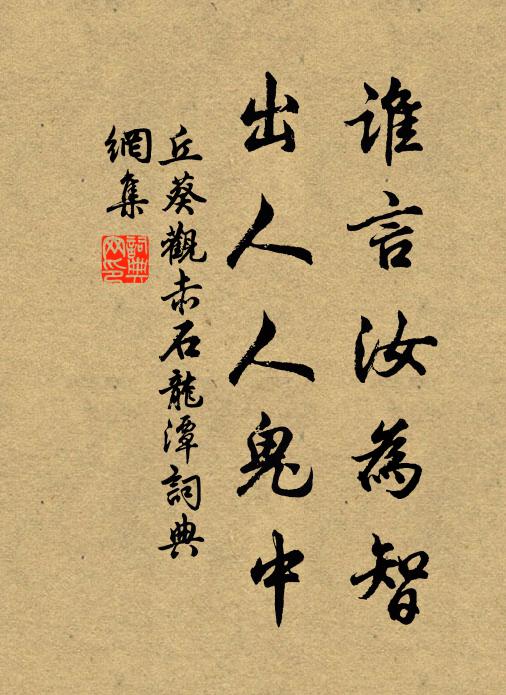 誰言汝為智
出人人鬼中
丘葵觀赤石龍潭詞典
網集
詞典
网印